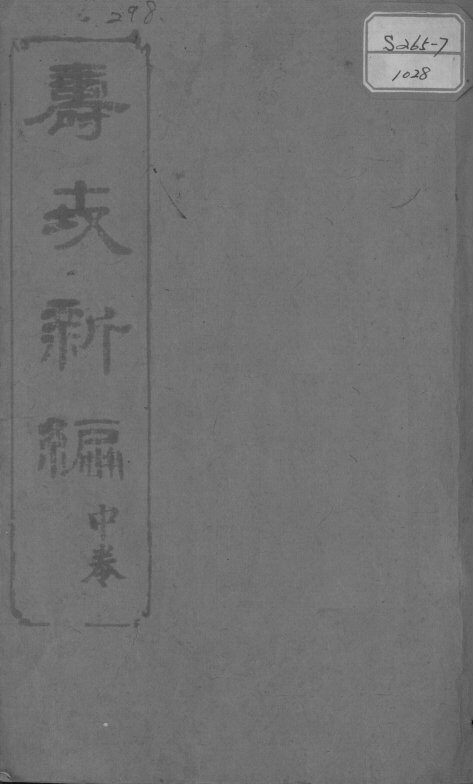 298.
S265-7
1028
壽世新編
中卷